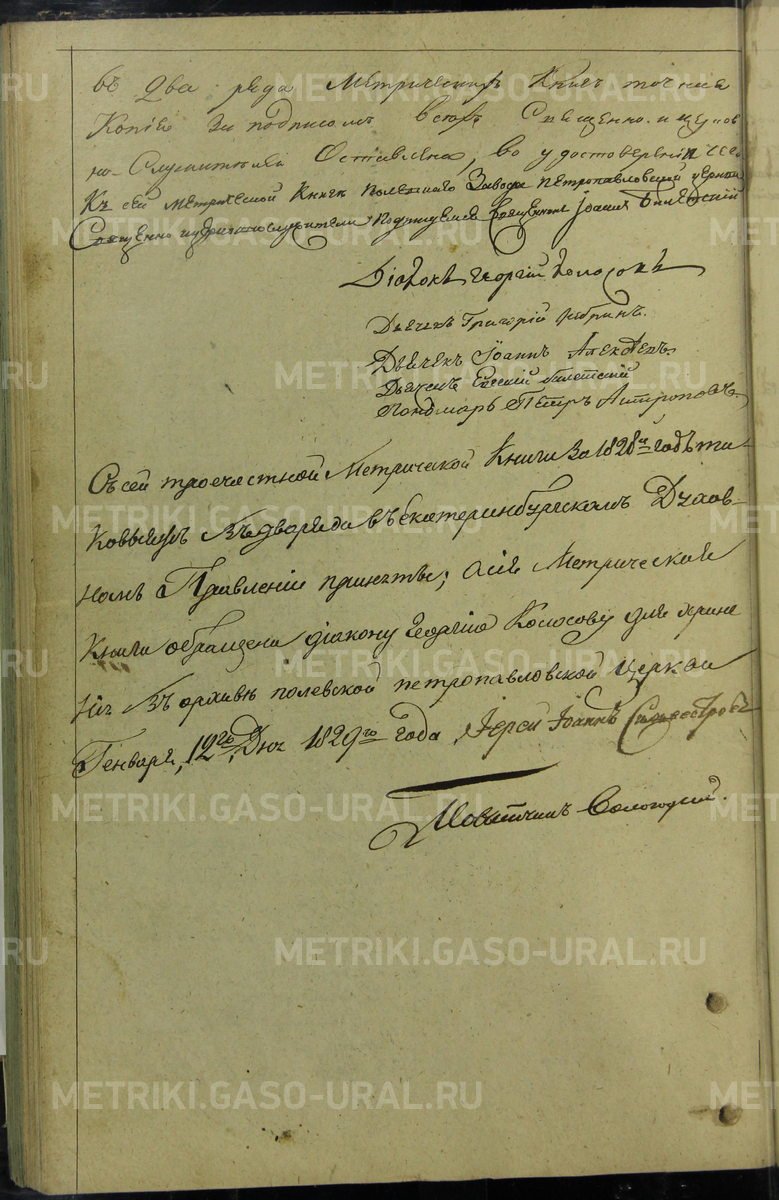 въ два ряда Метрическихъ Книгъ точная
Копія за подписомъ всехъ Священно и церков
но-Служителей Оставлена, во удостоверении чего
Къ сей метрической Книге Полевскаго Завода Петропавловской церкви
Священно и церковнослужители подписуемся Священникъ Іоаннъ
Діаконъ Георгій Колосовъ
Дьячекъ Григорій
Дьячекъ Іоаннъ Алексеевъ
Дьячекъ
Пономарь Петръ Антроповъ
Съ сей троечастной Метрической Книги за 1828й годъ та
ковыяжъ въ два ряда въ Екатеринбургскомъ Духов
номъ Правленіи приняты; а сія Метрическая
Книга обращена діакону Георгію Колосову для хране
нія въ архиве полевской петропавловской церкви
Генваря, 12го Дня 1829го года, Іерей Іоаннъ Сильвестровъ
Повытчикъ Вологодскій.
METRIKI.GASO-URAL.RU